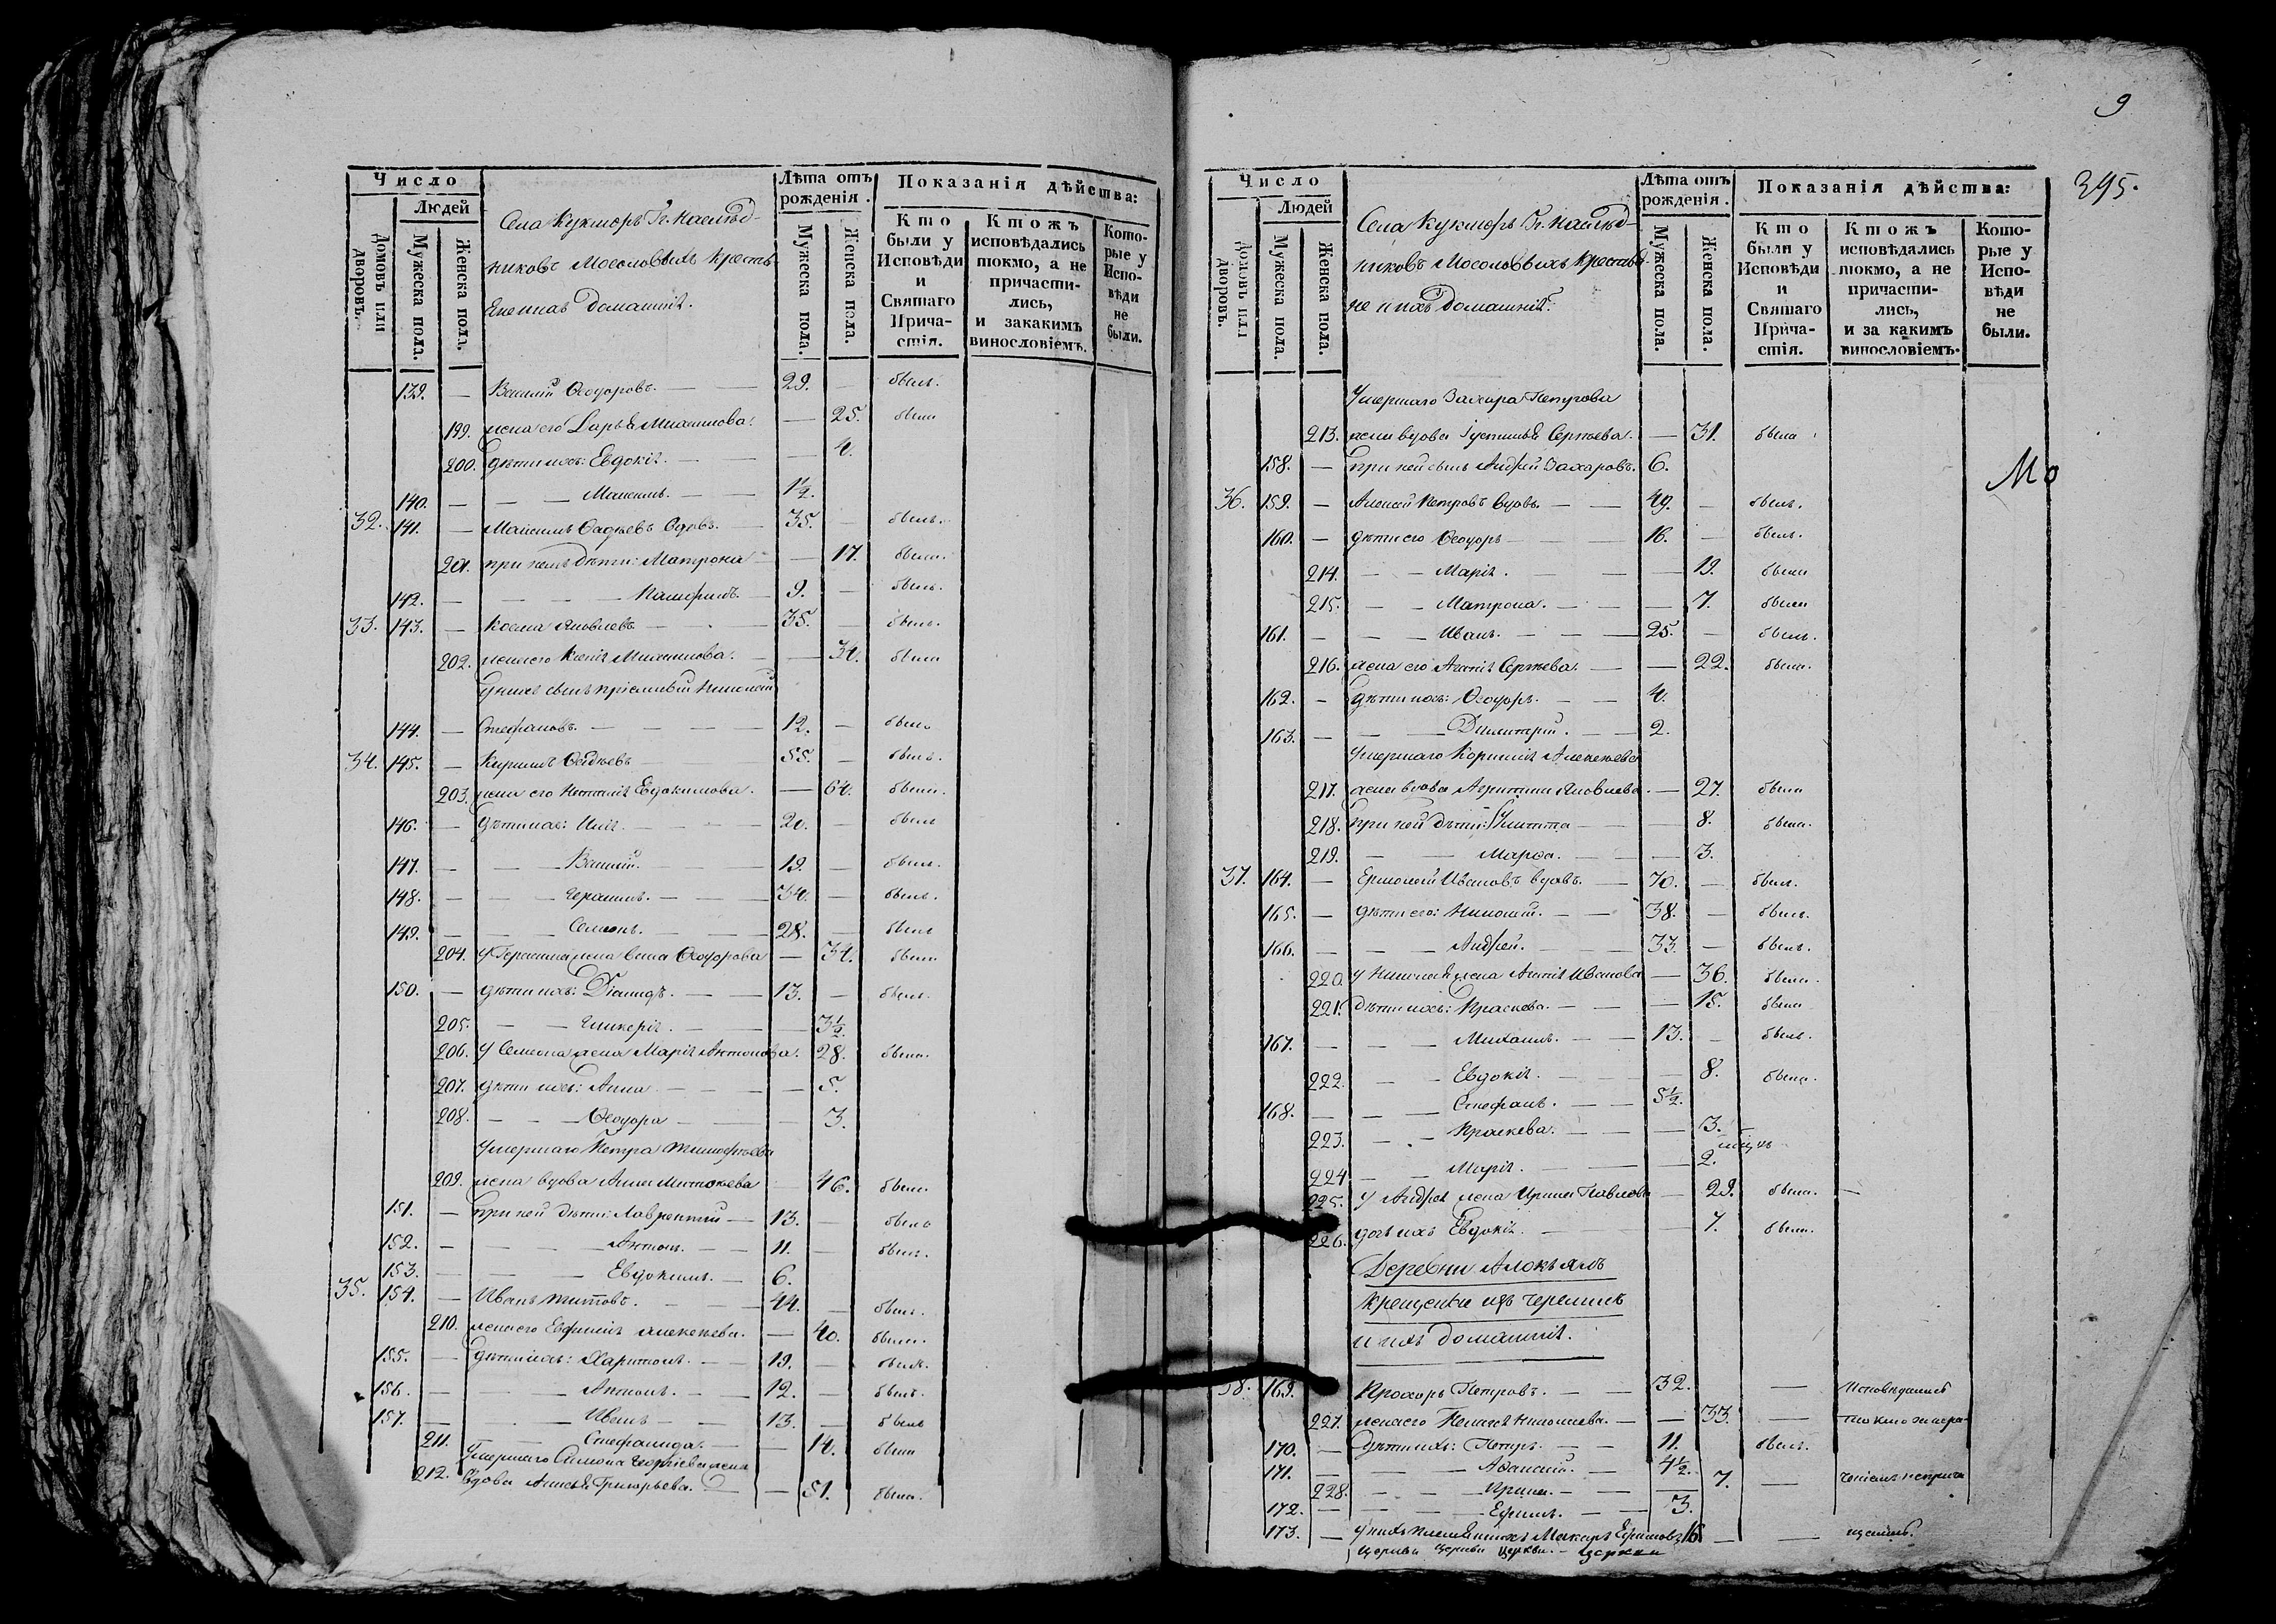 Число
Людей
Домовъ или дворовъ.
Мужеска пола.
Женска пола.
Села Кукморъ Гг. Наслѣд-
никовъ Мосоловыхъ крестья-
домашніе.
Лѣта отъ рожденія.
Мужеска пола.
Женска пола.
Показанія дѣйства:
Кто были у Исповѣди и Святаго Прича-стія.
Ктожъ исповѣдались токмо, а не причасти-лись, и закакимъ винословіемъ.
Кото-рые у Испо-вѣди не были.
139. — Василій Ѳеодоровъ. — — 29. — былъ.
199. жена его Дарья Михаилова. — 25. была
200. дѣти ихъ: Евдокія. — — 4.
140. — — — Максимъ. — — 1½.
32. 141. — Максимъ Ѳадѣевъ вдовъ. — 35. — былъ.
201. при немъ дѣти: Матрона — 17. была.
142. — — — — 9. — былъ.
33. 143. — Косма Яковлевъ — — 35. — былъ.
202. жена его Ксенія Михаилова. — — 34. была
у нихъ сынъ пріемный Николай
144. — Стефановъ. — — — 12. — былъ
34. 145. — Кирилъ Ѳадѣевъ — 55. — былъ.
203. жена его Наталія Евдокимова. — 64. была.
146. — дѣти ихъ: Илія. — — — 20. — былъ
147. — — — Василій. — — 19. — былъ.
148. — — — Герасимъ. — — — 34. — былъ.
149. — — — Семіонъ. — — — 28. — былъ
204. у Герасима жена Ѳеодорова — 34. была
150. — дѣти ихъ: Діомидъ. — — 13. — былъ.
205. — — Гликерія. — — — 3½.
206. у Семиона жена Марія Антонова. 28. была.
207. дѣти ихъ: Анна — — — 5.
208. — — — Ѳеодора — — — 3.
Умершаго Петра Тимофѣева
209. жена вдова Анна — 46. была.
151. — при ней дѣти: Лаврентій — 13. — былъ
152. — — — — Антонъ. — — 11. — былъ.
153. — — — Евдокимъ. — 6.
35. 154. — Иванъ Титовъ. — — — 44. — былъ.
210. жена его Евфимія Алексѣева. — 40. была.
155. — дѣти ихъ: Харитонъ. — — 19. былъ.
156. — — — Антонъ. — — 12. — былъ.
157. — — — Иванъ — — 13. — былъ
211. — Стефанида. — — 14. была
Умершаго Симона Георгіева жена
212. вдова Григорьева. — — 51. была.
9
395.
Мо
Число
Людей
Домовъ или дворовъ.
Мужеска пола.
Женска пола.
Села Кукморъ Гг. Наслѣд-
никовъ Мосоловыхъ крестья-
не и ихъ домашніе.
Лѣта отъ рожденія.
Мужеска пола.
Женска пола.
Показанія дѣйства:
Кто были у Исповѣди и Святаго Прича-стія.
Ктожъ исповѣдались токмо, а не причасти-лись, и за какимъ винословіемъ.
Кото-рые у Испо-вѣди не были.
Умершаго Захара Петрова
213. жена вдова Іустинья Сергѣева. — 31. была
158. — при ней сынъ Андрей Захаровъ. 6.
36. 159. — Алексей Петровъ вдовъ. — — 49. — былъ.
160. — дѣти его Ѳеодоръ — — — 16. — былъ.
214. — — Марія. — — — 19. была
215. — — Матрона. — — — 7. была
161. — — — Иванъ. — — — 25. — былъ.
216. жена его Сергѣева. — — 22. была.
162. — дѣти ихъ: Ѳеодоръ. — — 4.
163. — — — Димитрій. — — 2.
Умершаго Корнилія Алексѣева
217. жена вдова Яковлева. — 27. была
218. при ней дѣти: — — 8. была.
219. — — Марѳа. — — 3.
37. 164. — Ермолай Ивановъ вдовъ. — 70. — былъ.
165. — дѣти его: Николай. — — 38. — былъ.
166. — — — Андрей. — — 33. — былъ.
220. у Николая жена Иванова — 36. была.
221. дѣти ихъ: Праскева. — — — 15. была
167. — — — Михаилъ. — — 13. — былъ.
222. — — Евдокія. — — 8. была.
168. — — — Стефанъ. — — 5½.
223. — — Праскева. — — 3. —
224. — — Марія. — — — 2.
225. у Андрея жена Ирина Павлова — 29. была. —
226. дочь ихъ Евдокія. — — 7. была.
Деревни
крещены изъ черемисъ
и ихъ домашніе.
38. 169. Прохоръ Петровъ. — — 32. — Исповѣдались
227. жена его Николаева. — — 33. — токмо
170. — дѣти ихъ: Петръ. — — 11. былъ.
171. — — — Аѳанасій. — 4½.
228. — — — Ирина. — — 7. —
172. — — — Ефимъ. — 3.
173. — у нихъ племянникъ Макаръ Ефимовъ 16. — —
церкви церкви церкви. — церкви